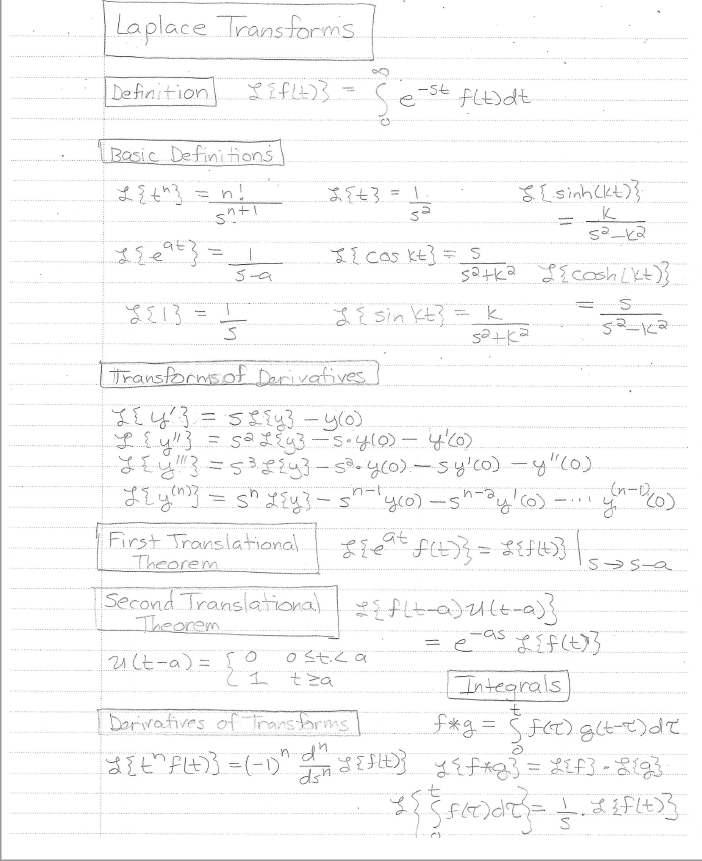 Laplace Transforms
Definition ℒ{f(t)} = ∫₀^∞ e^(-st) f(t)dt
Basic Definitions
ℒ{tⁿ} = n!/s^(n+1) ℒ{t} = 1/s² ℒ{sinh(kt)} = k/(s²-k²)
ℒ{e^(at)} = 1/(s-a) ℒ{cos kt} = s/(s²+k²) ℒ{cosh(kt)} = s/(s²-k²)
ℒ{1} = 1/s ℒ{sin kt} = k/(s²+k²)
Transforms of Derivatives
ℒ{y'} = sℒ{y} - y(0)
ℒ{y''} = s²ℒ{y} - s·y(0) - y'(0)
ℒ{y'''} = s³ℒ{y} - s²·y(0) - sy'(0) - y''(0)
ℒ{y^(n)} = sⁿℒ{y} - s^(n-1)y(0) - s^(n-2)y'(0) - ... y^(n-1)(0)
First Translational
Theorem
ℒ{e^(at) f(t)} = ℒ{f(t)}|s→s-a
Second Translational
Theorem
ℒ{f(t-a)u(t-a)}
= e^(-as) ℒ{f(t)}
u(t-a) = { 0 0≤t<a
1 t≥a
Integrals
f*g = ∫₀^t f(τ) g(t-τ)dτ
Derivatives of Transforms
ℒ{tⁿf(t)} = (-1)ⁿ dⁿ/dsⁿ ℒ{f(t)}
ℒ{f*g} = ℒ{f}·ℒ{g}
ℒ{∫₀^t f(τ)dτ} = 1/s · ℒ{f(t)}